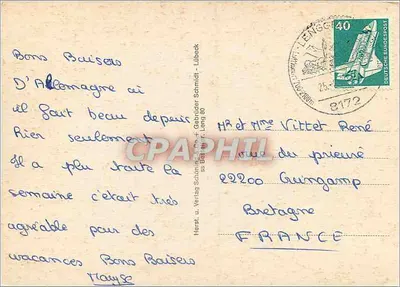 Bons Baisers
D'Allemagne ici
il fait beau depuis
hier seulement
Il a plu toute la
semaine c'était très
agréable pour des
vacances Bons Baisers
Herst. u. Verlag Schöning & Co + Gebrüder Schmidt - Lübeck
Leng 80
CPAPHIL
LENGG
8172
40
DEUTSCHE BUNDESPOST
Mr et Mme Vittet René
rue du prieuré
22200 Guingamp
Bretagne
FRANCE